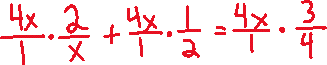 4x/1 · 2/x + 4x/1 · 1/2 = 4x/1 · 3/4